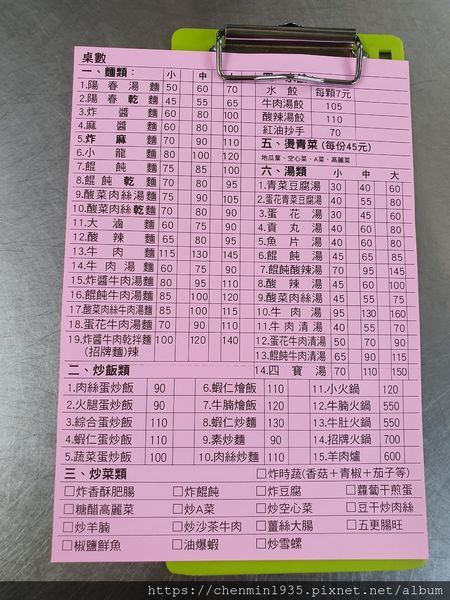 桌數
一、麵類： 小 中
1.陽春湯麵 50 60 70
2.陽春乾麵 45 55 65
3.炸醬麵 70 80 90
4.麻醬麵 70 80 90
5.炸麻麵 70 80 90
6.小龍麵 80 100 120
7.餛飩麵 75 85 100
8.餛飩乾麵 70 80 95
9.酸菜肉絲湯麵 75 85 95
10.酸菜肉絲乾麵 70 80 90
11.大滷麵 60 75 90
12.酸辣麵 65 80 95
13.牛肉麵 115 130 145
14.牛肉湯麵 60 75 90
15.炸醬牛肉湯麵 80 95 110
16.餛飩牛肉湯麵 85 100 120
17.酸菜肉絲牛肉湯麵 85 100 115
18.蛋花牛肉湯麵 70 90 110
19.炸醬牛肉乾拌麵 100 120 140
(招牌麵)辣
水餃 每顆7元
牛肉湯餃 105
酸辣湯餃 110
紅油抄手 70
五、燙青菜(每份45元)
地瓜葉、空心菜、A菜、高麗菜
六、湯類 小 中 大
1.青菜豆腐湯 30 40 60
2.蛋花青菜豆腐湯 40 55 80
3.蛋花湯 30 40 60
4.貢丸湯 40 55 80
5.魚片湯 60 80
6.餛飩湯 45 65 85
7.餛飩酸辣湯 70 95 145
8.酸辣湯 45 60 80
9.酸菜肉絲湯 45 55 75
10.牛肉湯 95 130 160
11.牛肉清湯 40 55 70
12.蛋花牛肉清湯 50 70 90
13.餛飩牛肉清湯 65 90 115
14.四寶湯 70 110 150
二、炒飯類
1.肉絲蛋炒飯 90 6.蝦仁燴飯 110 11.小火鍋 120
2.火腿蛋炒飯 90 7.牛腩燴飯 120 12.牛腩火鍋 550
3.綜合蛋炒飯 110 8.蝦仁炒麵 130 13.牛肚火鍋 550
4.蝦仁蛋炒飯 110 9.素炒麵 90 14.招牌火鍋 700
5.蔬菜蛋炒飯 100 10.肉絲炒麵 110 15.羊肉爐 600
三、炒菜類 □炸時蔬(香菇＋青椒＋茄子等)
□炸香酥肥腸 □炸餛飩 □炸豆腐 □蘿蔔干煎蛋
□糖醋高麗菜 □炒A菜 □炒空心菜 □豆干炒肉絲
□炒羊腩 □炒沙茶牛肉 □薑絲大腸 □五更腸旺
□椒鹽鮮魚 □油爆蝦 □炒雪螺
https://chenmin1935.pixnet.net/album